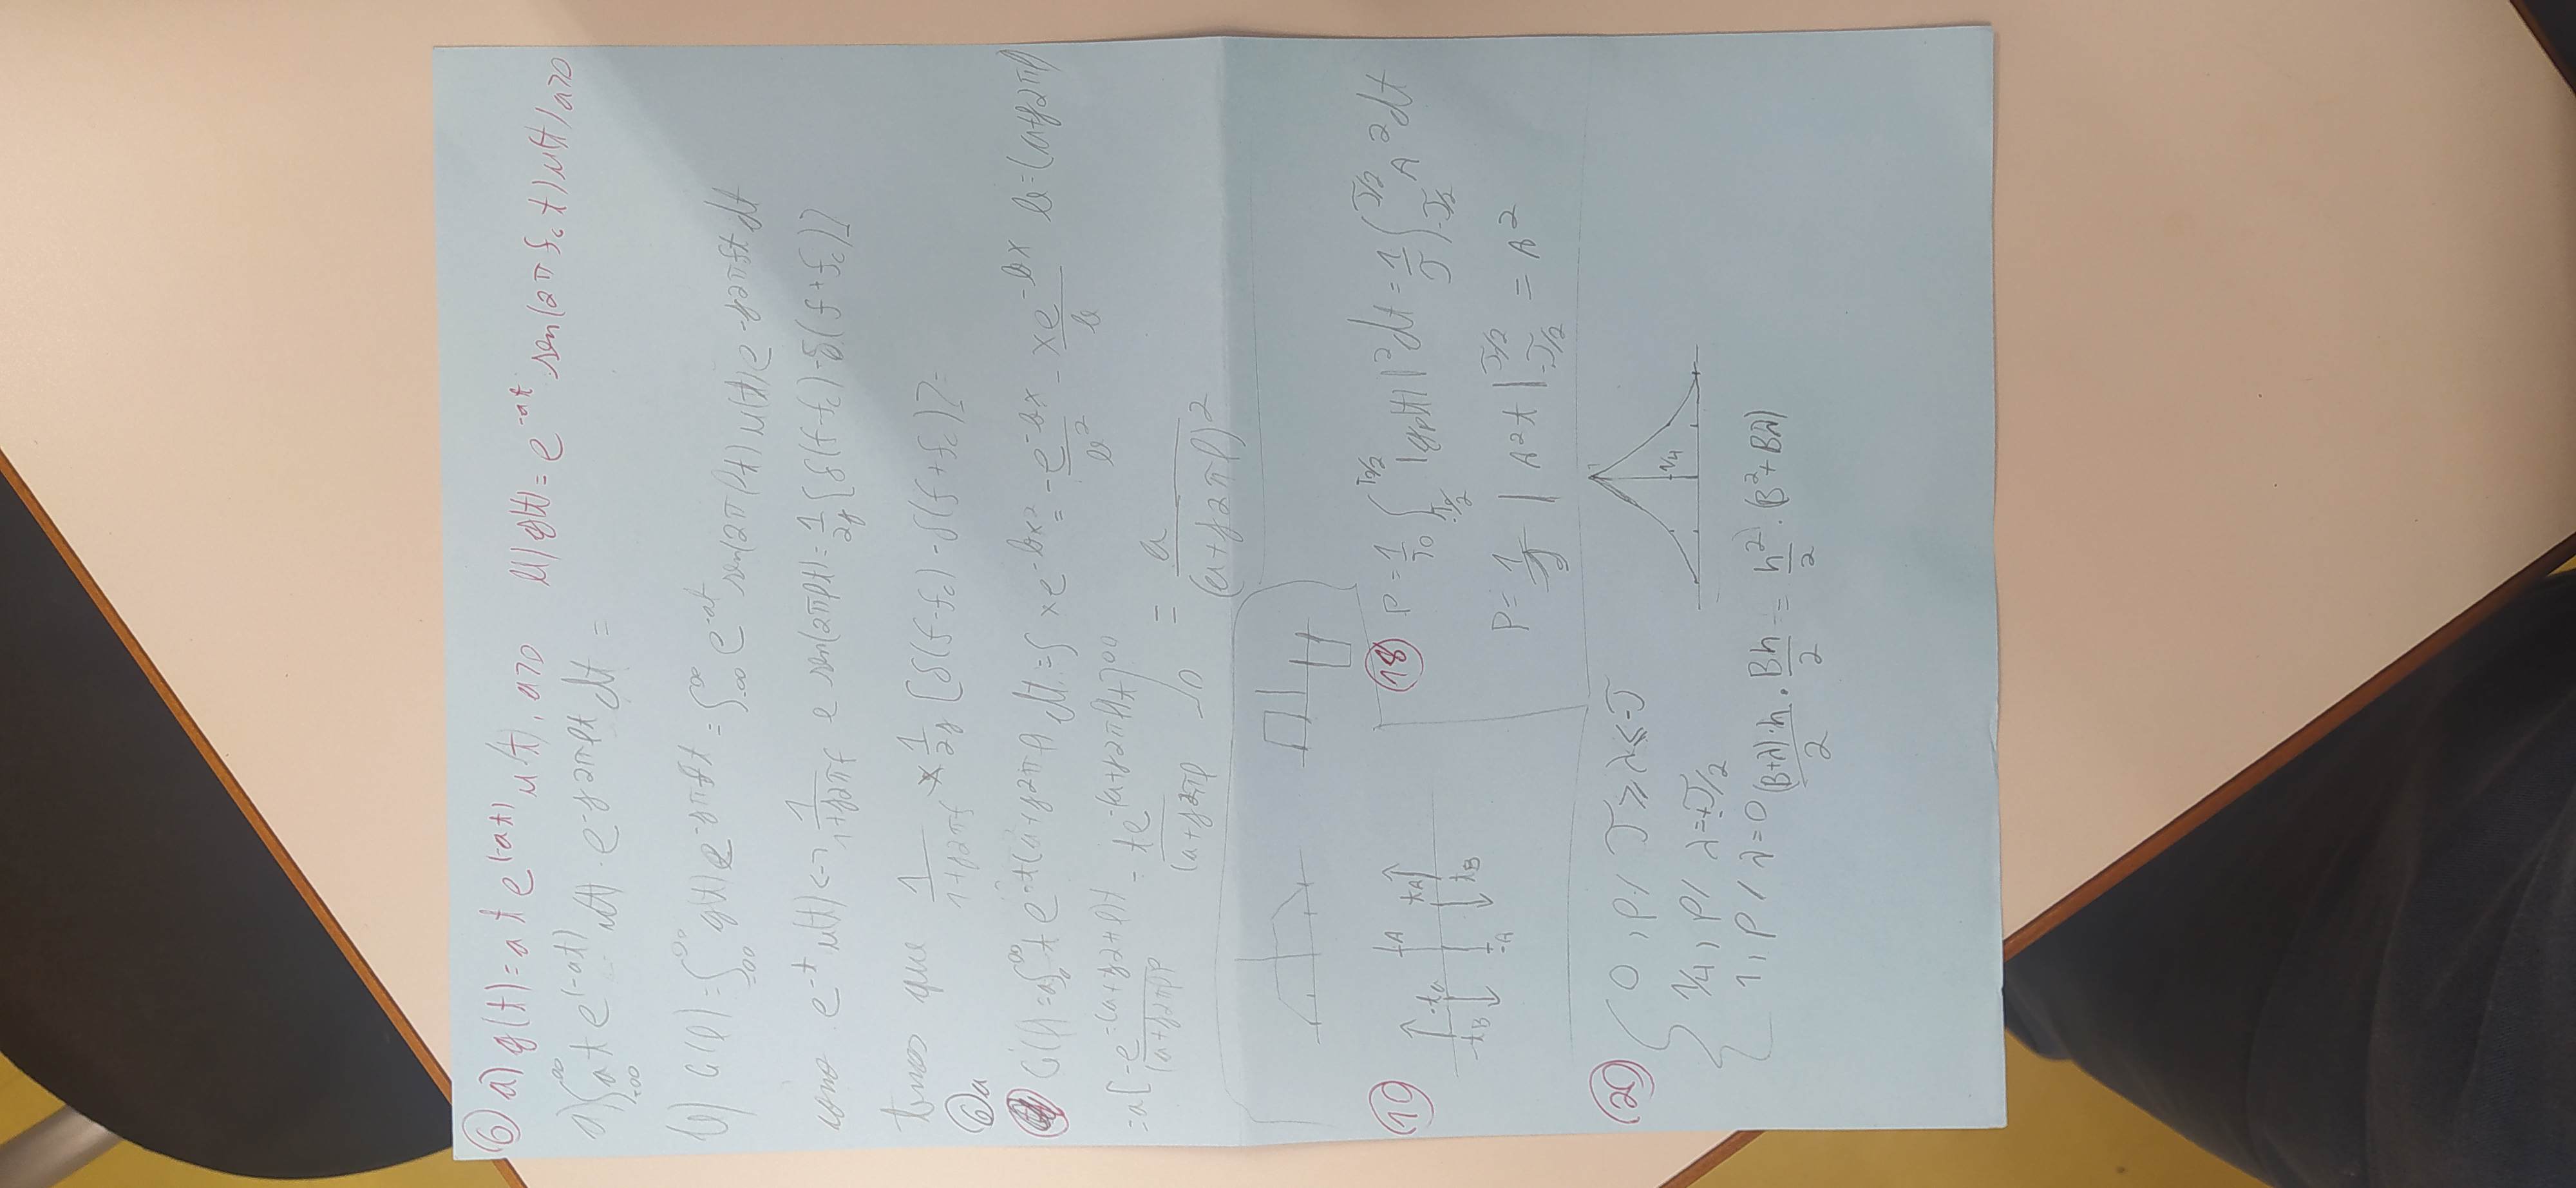 6 a) g(t) = a t e^(-at) u(t), a>0    b) g(t) = e^-at sen(2π fc t) u(t) a>0
a) ∫_-∞^∞ a t e^(-at) u(t) · e^-j2πft dt =
b) G(f) = ∫_-∞^∞ g(t) e^-jπft = ∫_-∞^∞ e^-at sen(2πft) u(t) e^-j2πft dt
como e^-t u(t) <-> 1/(1+j2πf) e sen(2πft) = 1/2j [δ(f-fc) - δ(f+fc)]
temos que 1/(1+j2πf) * 1/2j [δ(f-fc) - δ(f+fc)] =
6a
G(f) = a∫_0^∞ t e^-t(a+j2πf) dt = ∫ x e^-bx = -e^-bx/b^2 - xe^-bx/b    b = (a+j2πf)
= a[-e^-(a+j2πf)t/(a+j2πf)^2 - te^-(a+j2πf)t/(a+j2πf)]_0^∞ = a/(a+j2πf)^2
19
A
-tA tA
-tB tB
-A
18 P = 1/T0 ∫_-T0/2^T0/2 |gp(t)|^2 dt = 1/T ∫_-T/2^T/2 A^2 dt
P = 1/T | A^2 t |_-T/2^T/2 = A^2
20
0, p/ T ≥ λ ≤ -T
1/4, p/ λ = ±T/2
1, p/ λ = 0
1/4
(B+λ)·h/2 · Bh/2 = h^2/2 · (B^2 + Bλ)